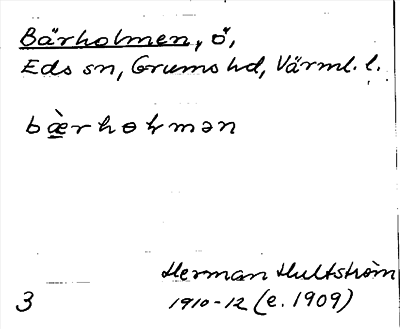 Bärholmen, ö,
Eds sn, Grums hd, Värml. l.
bæ̀rhoɫmən
Herman Hultström
3 1910-12 (e. 1909)